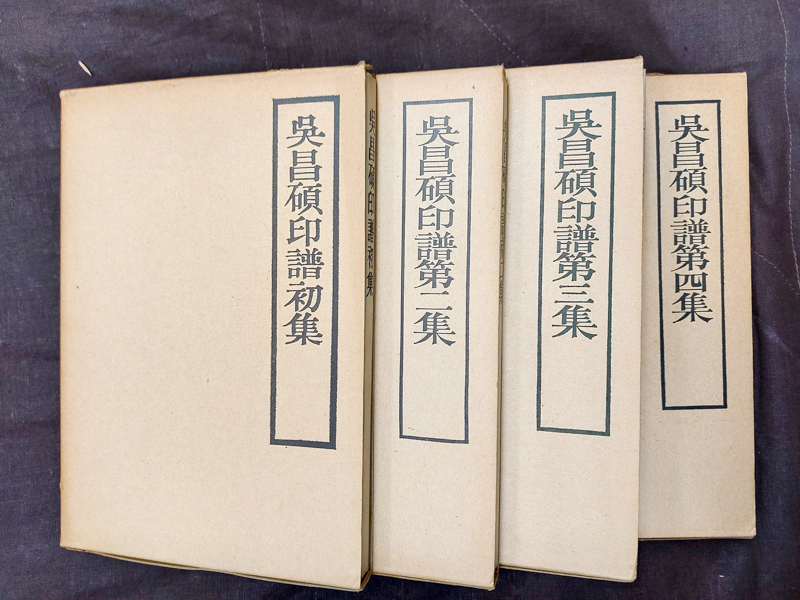 吳昌碩印譜初集
吳昌碩印譜初集
吳昌碩印譜第二集
吳昌碩印譜第三集
吳昌碩印譜第四集